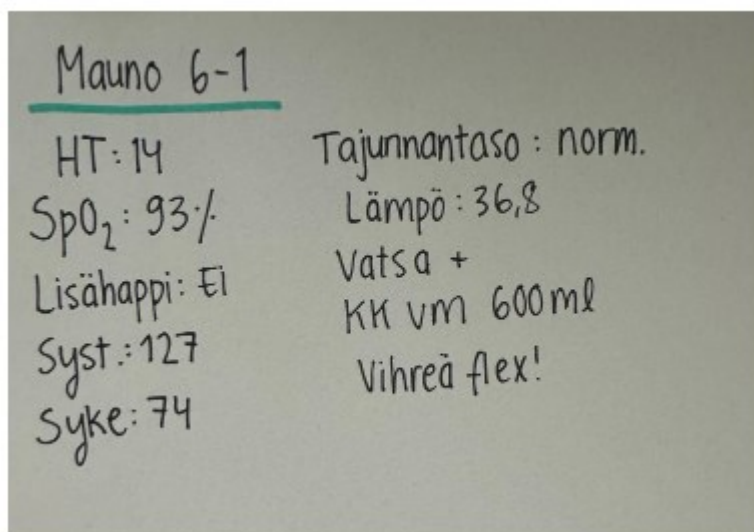 Mauno 6-1
HT: 14
SpO₂: 93%
Lisähappi: Ei
Syst.: 127
Syke: 74
Tajunnantaso: norm.
Lämpö: 36,8
Vatsa +
KK vm 600ml
Vihreä flex!